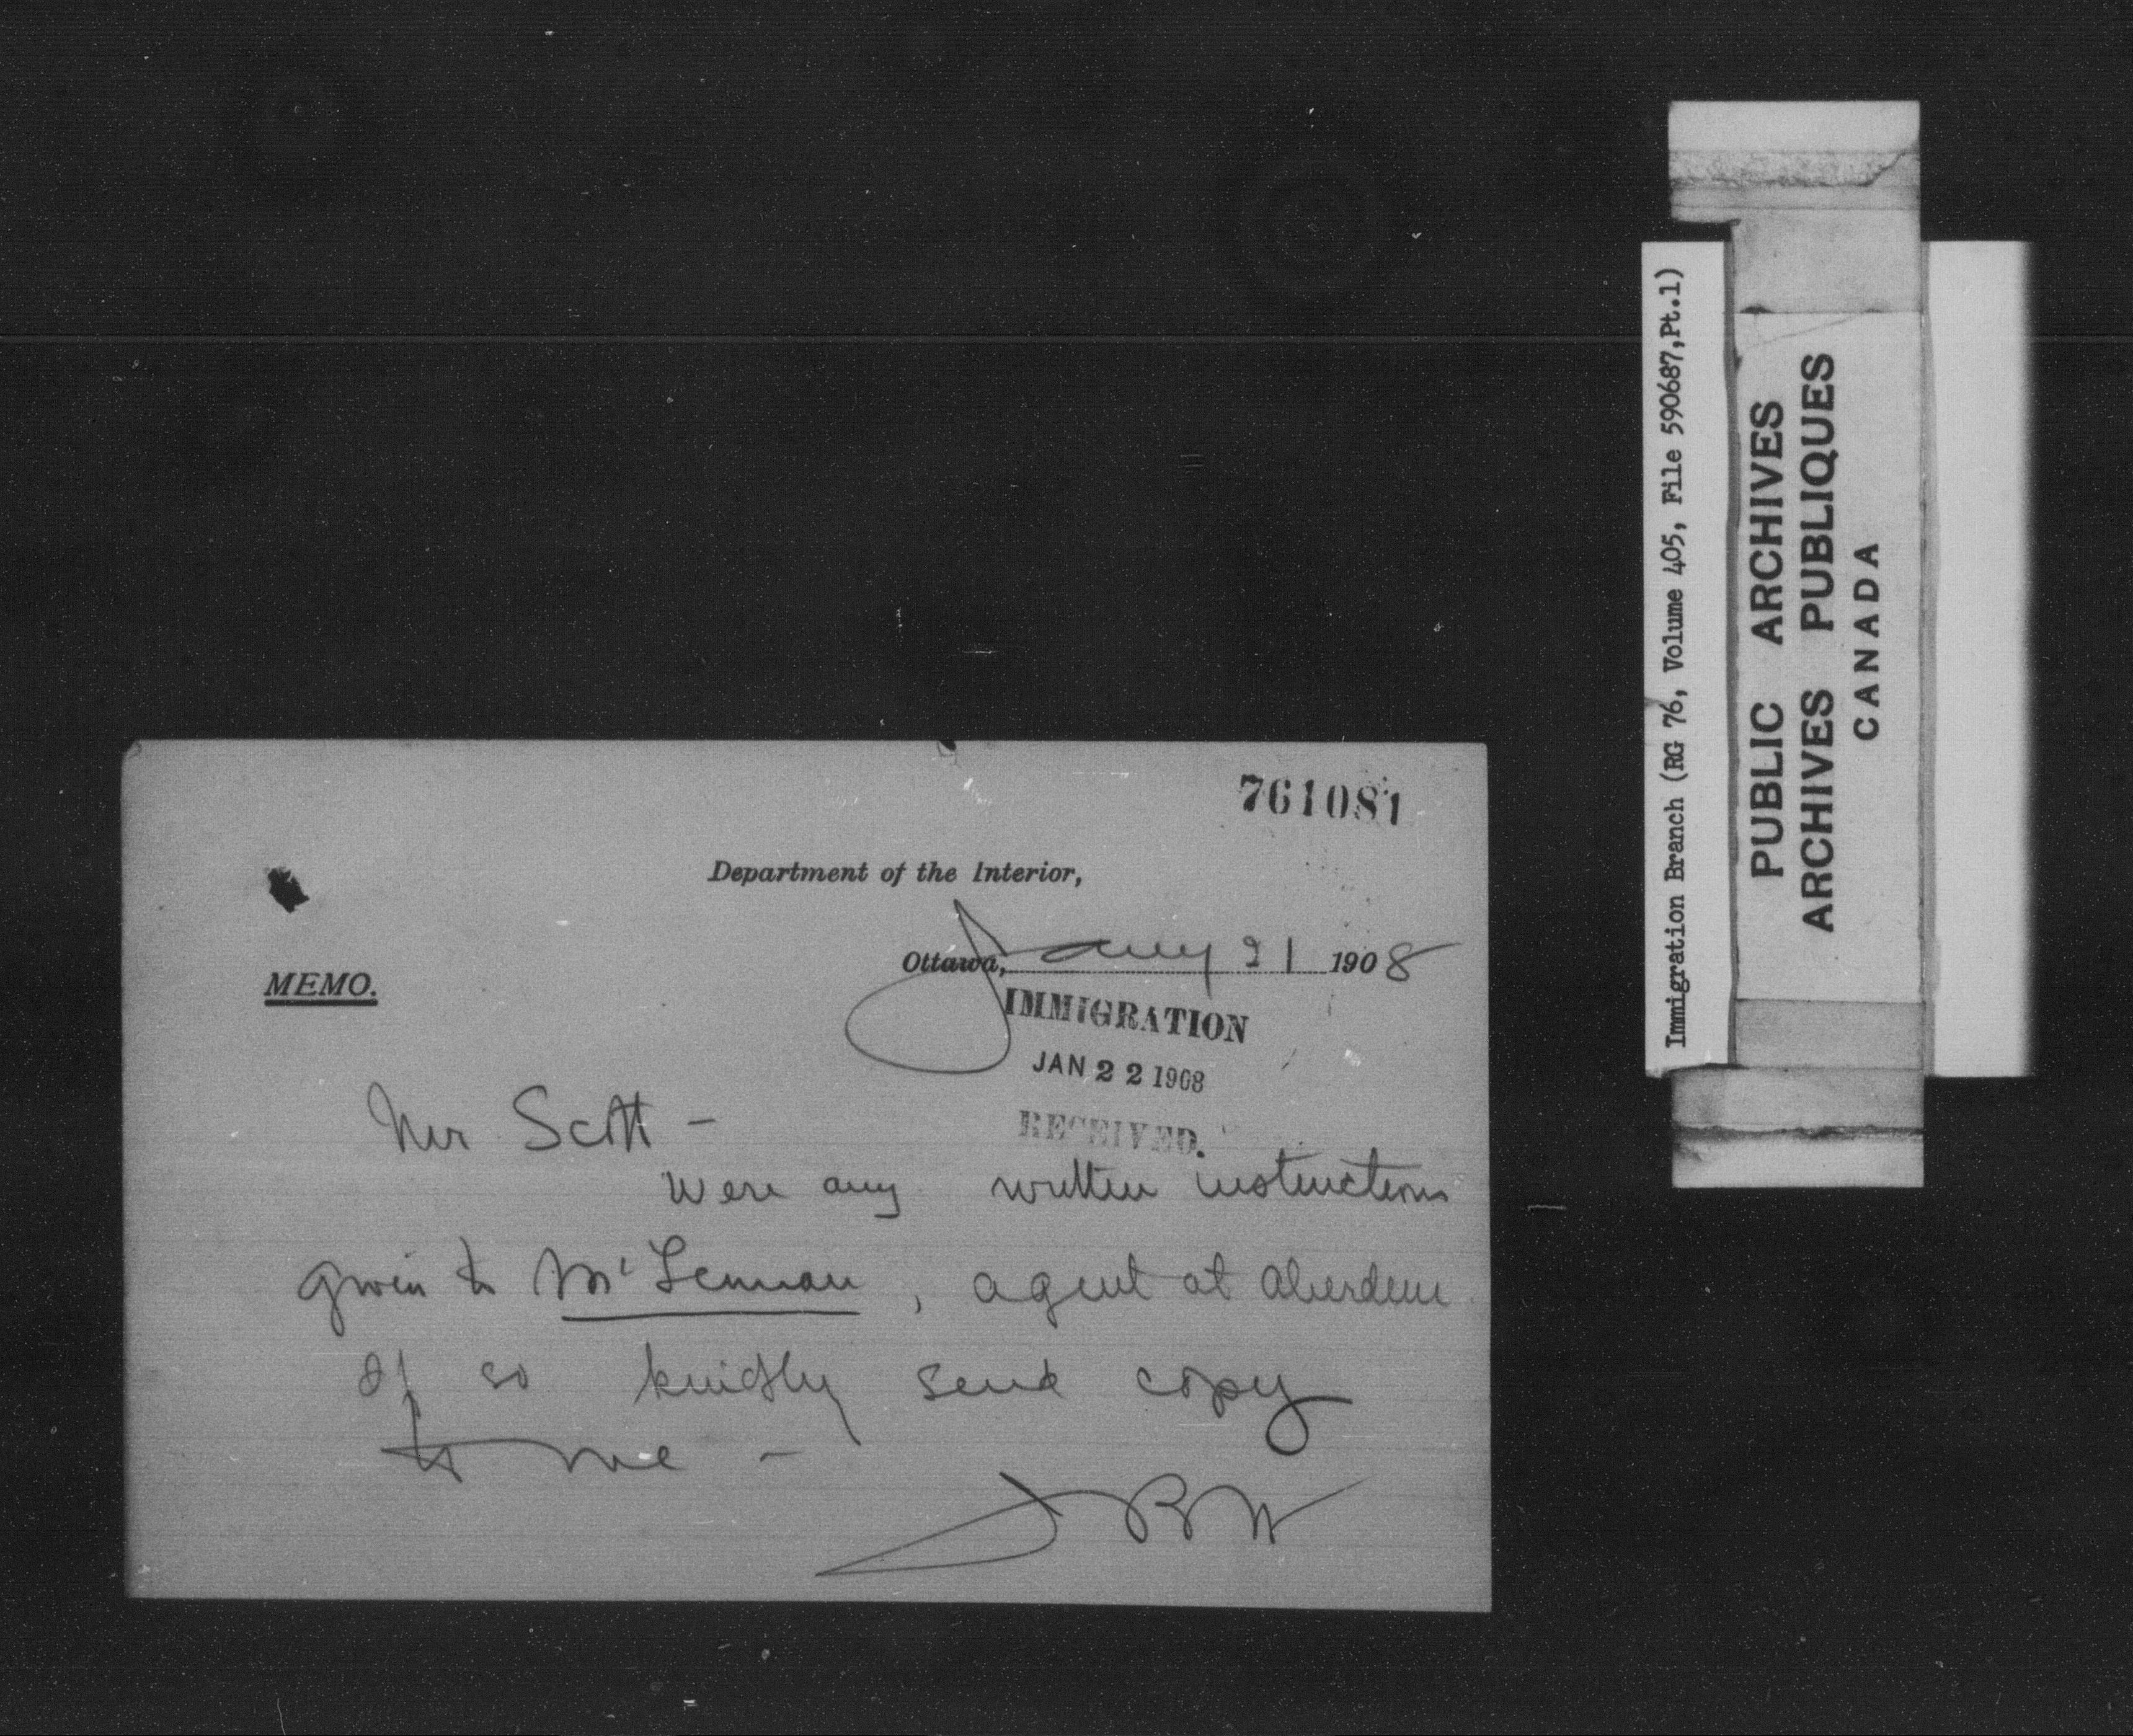 761081
Department of the Interior,
Ottawa, Jany 21 1908
MEMO.
IMMIGRATION
JAN 22 1908
RECEIVED.
Mr Scott -
Were any written instructions
given to McLennan, agent at Aberdeen
If so kindly send copy
to me -
JBW
Immigration Branch (RG 76, Volume 405, File 590687,Pt.1)
PUBLIC ARCHIVES
ARCHIVES PUBLIQUES
CANADA